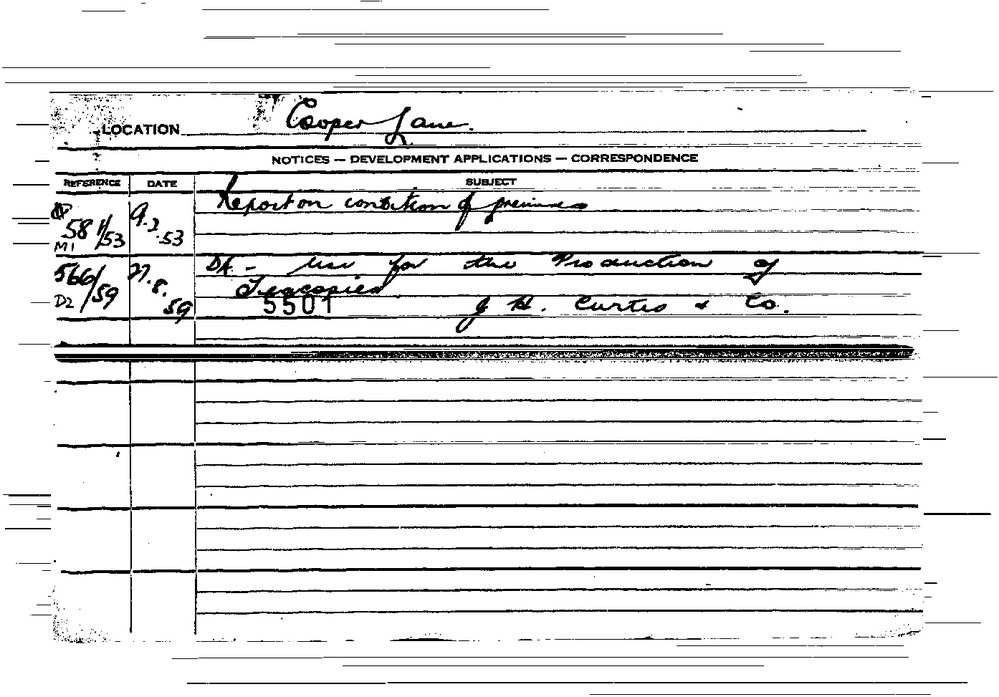 LOCATION Cooper Lane.
NOTICES — DEVELOPMENT APPLICATIONS — CORRESPONDENCE
REFERENCE DATE SUBJECT
581/53 9.2.53 Report on condition of premises
M1
566/59 27.8.59 DA - Use for the Production of
D2
5501 J H. Curtis & Co.